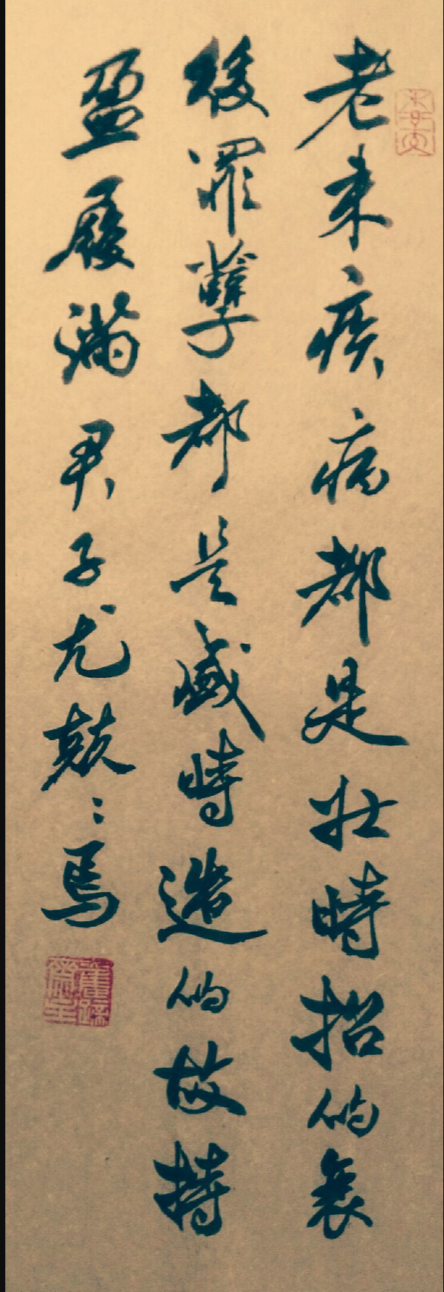 老来疾病都是壮時招的衰
後罪孽都是盛時造的故持
盈履滿君子尤兢〻焉